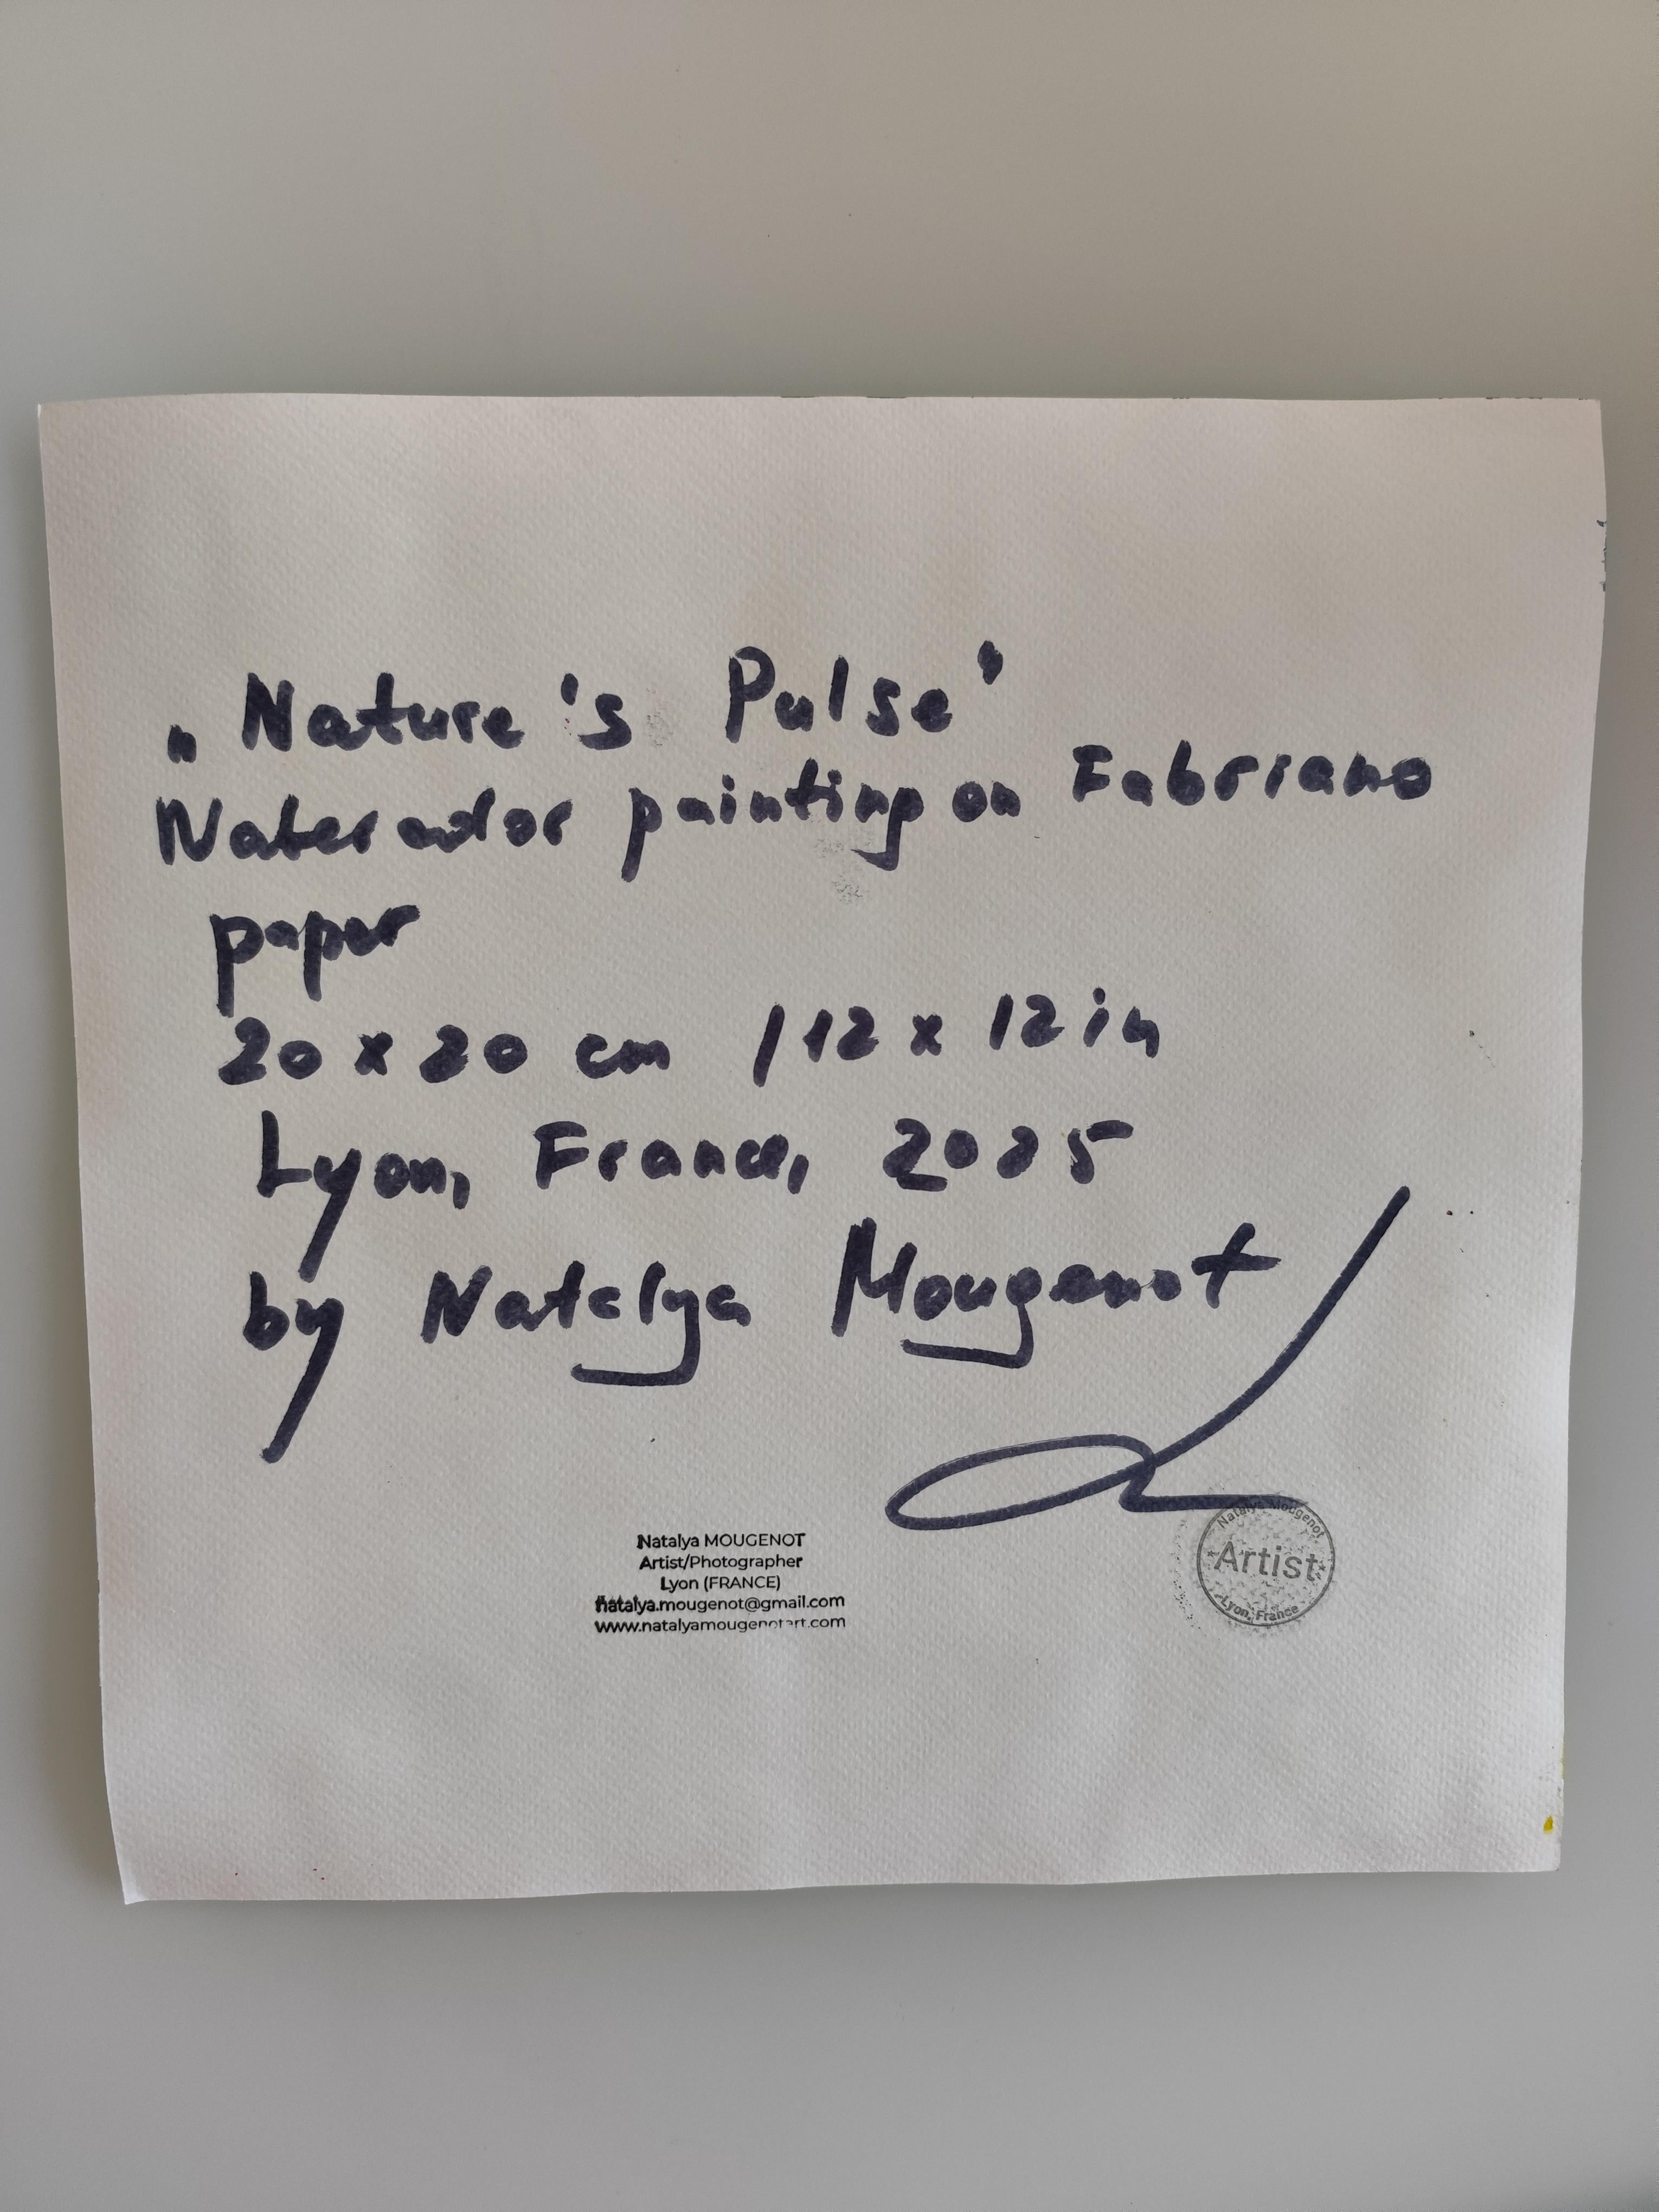 „Nature's Pulse"
Watercolor painting on Fabriano
paper
20 x 20 cm / 12 x 12 in
Lyon, France, 2025
by Natalya Mougenot
Natalya MOUGENOT
Artist/Photographer
Lyon (FRANCE)
natalya.mougenot@gmail.com
www.natalyamougenotart.com
Natalya Mougenot
Artist
Lyon, France